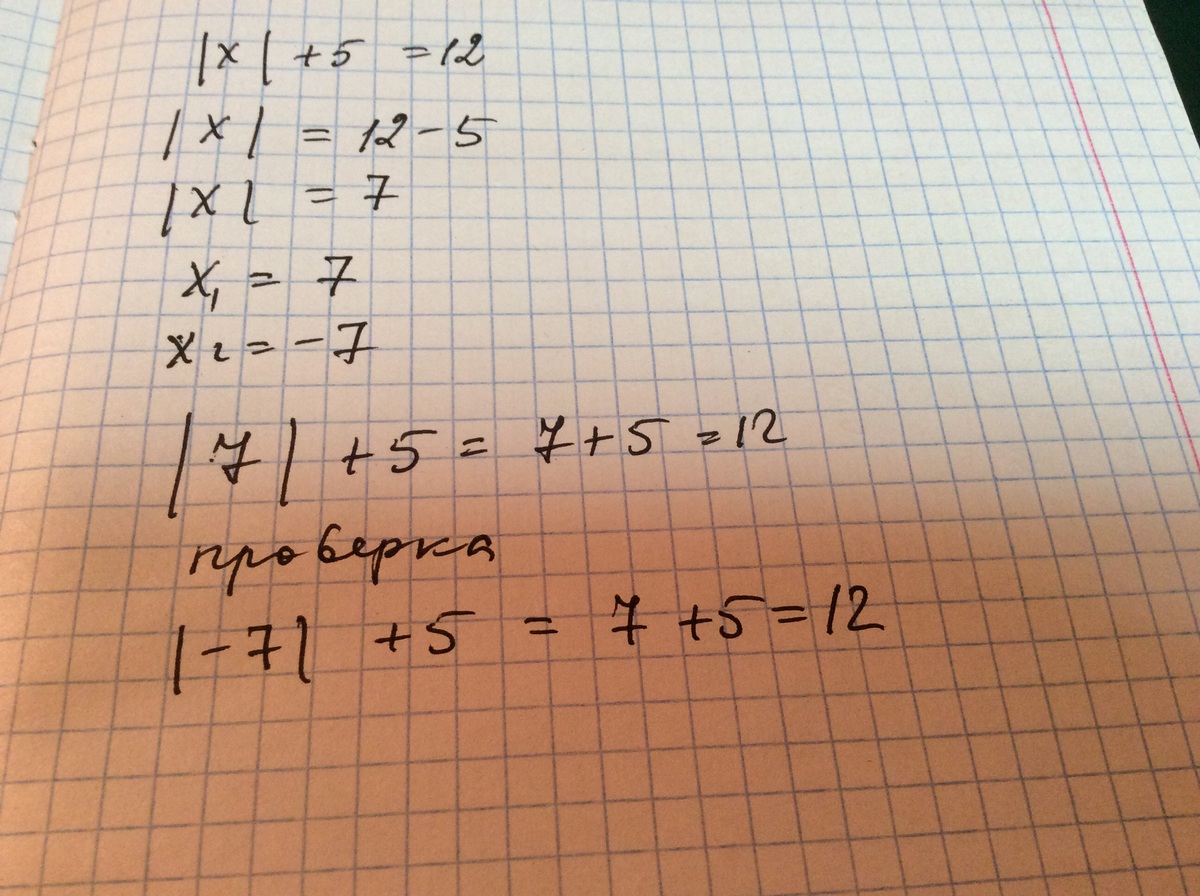 |x| + 5 = 12
|x| = 12 - 5
|x| = 7
x₁ = 7
x₂ = -7
|7| + 5 = 7 + 5 = 12
проверка
|-7| + 5 = 7 + 5 = 12